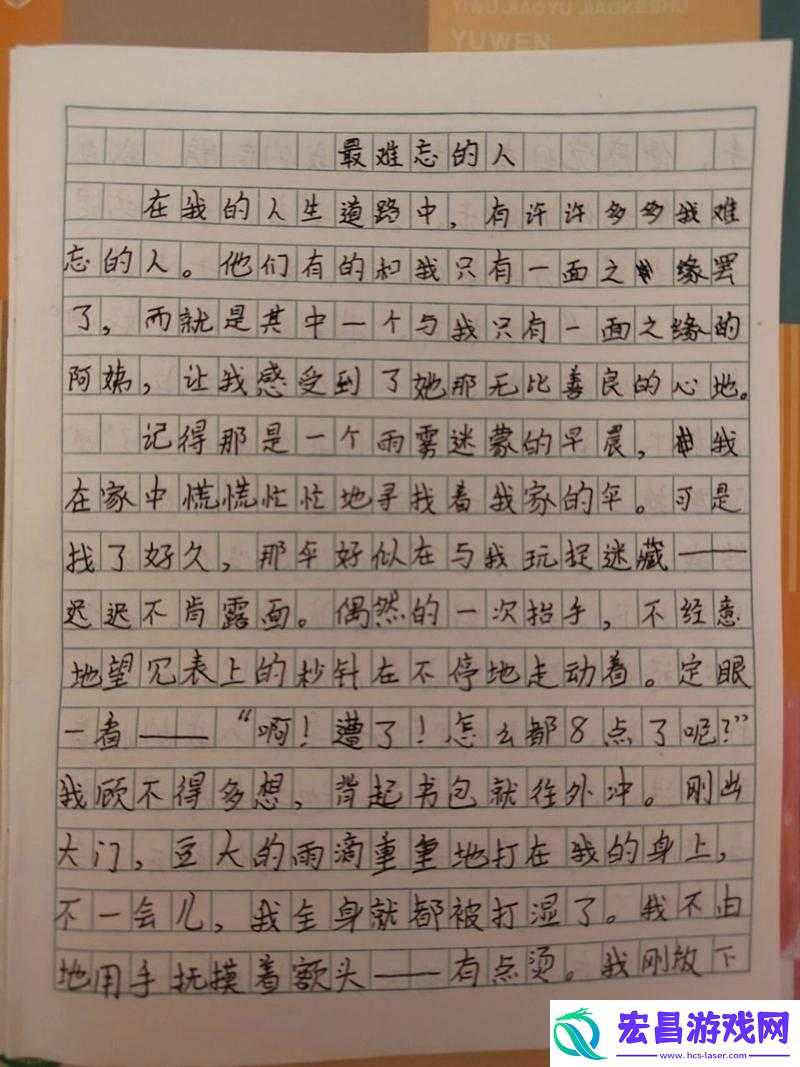 YIWU JIAOYU JIAOKESHU
YUWEN
最难忘的人
在我的人生道路中，有许许多多我难
忘的人。他们有的和我只有一面之缘罢
了，而就是其中一个与我只有一面之缘的
阿姨，让我感受到了她那无比善良的心地。
记得那是一个雨雾迷蒙的早晨，我
在家中慌慌忙忙地寻找着我家的伞。可是
找了好久，那伞好似在与我玩捉迷藏——
迟迟不肯露面。偶然的一次抬手，不经意
地望见表上的秒针在不停地走动着。定眼
一看——“啊！遭了！怎么都8点了呢？”
我顾不得多想，背起书包就往外冲。刚出
大门，豆大的雨滴重重地打在我的身上，
不一会儿，我全身就都被打湿了。我不由
地用手抚摸着额头——有点烫。我刚放下
宏昌游戏网
www.hcs-laser.com